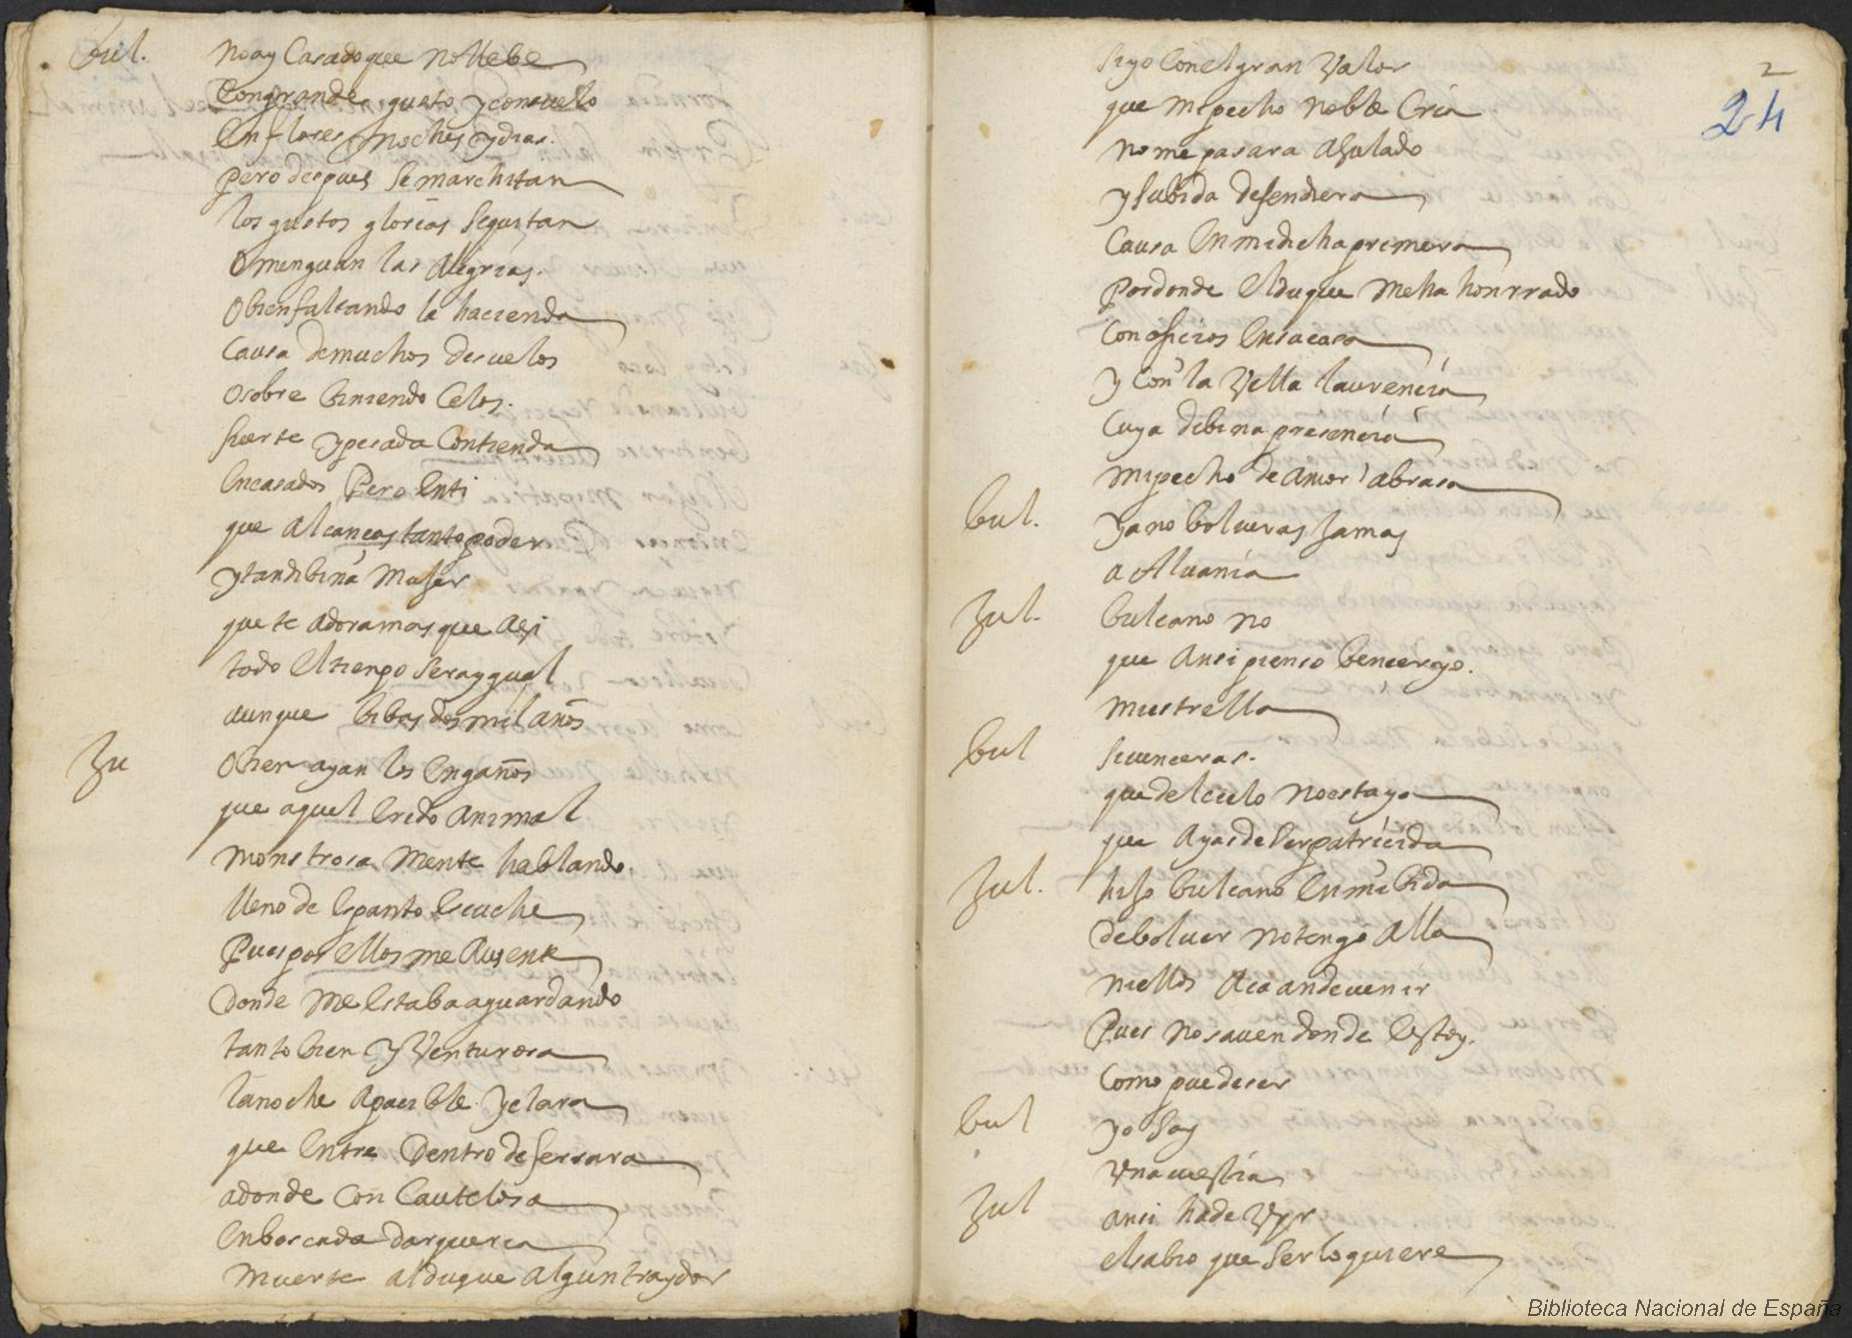 bul. no ay Casado que no llebe
Con grande gusto y consuelo
En flores noches y dias.
pero despues se marchitan
los gustos glorias se quitan
O menguan las Alegrias.
O bien faltando la hacienda
Causa de muchos desuelos
O sobre biniendo Celos.
fuerte y pesada Contienda
En casados Pero En ti
que alcanças tanto poder
y tan dibina Mujer
que te adoramos que asi
todo El tienpo sera ygual
aunque bibas dos mil años
Ju O bien ayan los Engaños
que aquel Erido Animal
monstrosa Mente hablando.
lleno de Espanto Escuche
Pues por Ellos me Ausente
Donde Me Estaba aguardando
tanto bien y Venturosa
la noche Apacible y clara
que Entre Dentro de ferrara
adonde Con Cautelosa
Enboscada dar queria
Muerte al duque Algun traydor
si yo Con el gran Valor
que mi pecho noble Cria
no me pasara A su lado
y su bida defendiera
Causa En mi dicha primera
Por donde El duque Me ha honrrado
Con oficios En su casa
y Con la Vella laurencia
Cuya dibina presencia
Mi pecho de Amor abrasa
bul. ya no bolueras Jamas
a Aluania
Jul. bulcano no
que Ansi pienso bencer yo.
mi estrella
bul si uenceras.
que del cielo no esta yo
que Ayas de Ser patricida
Jul. hijo bulcano En mi bida
de boluer no tengo Alla
ni ellos Aca an de uenir
Pues no sauen donde Estoy.
Como puede ser
bul yo soy
Vna uestia
Jul ansi ha de Vyr
el sabio que Ser lo quiere
2
24
Biblioteca Nacional de España